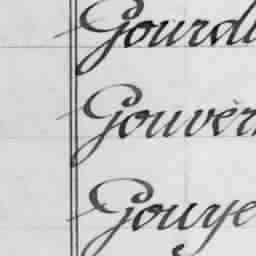 Gourd
Gouver
Gouye